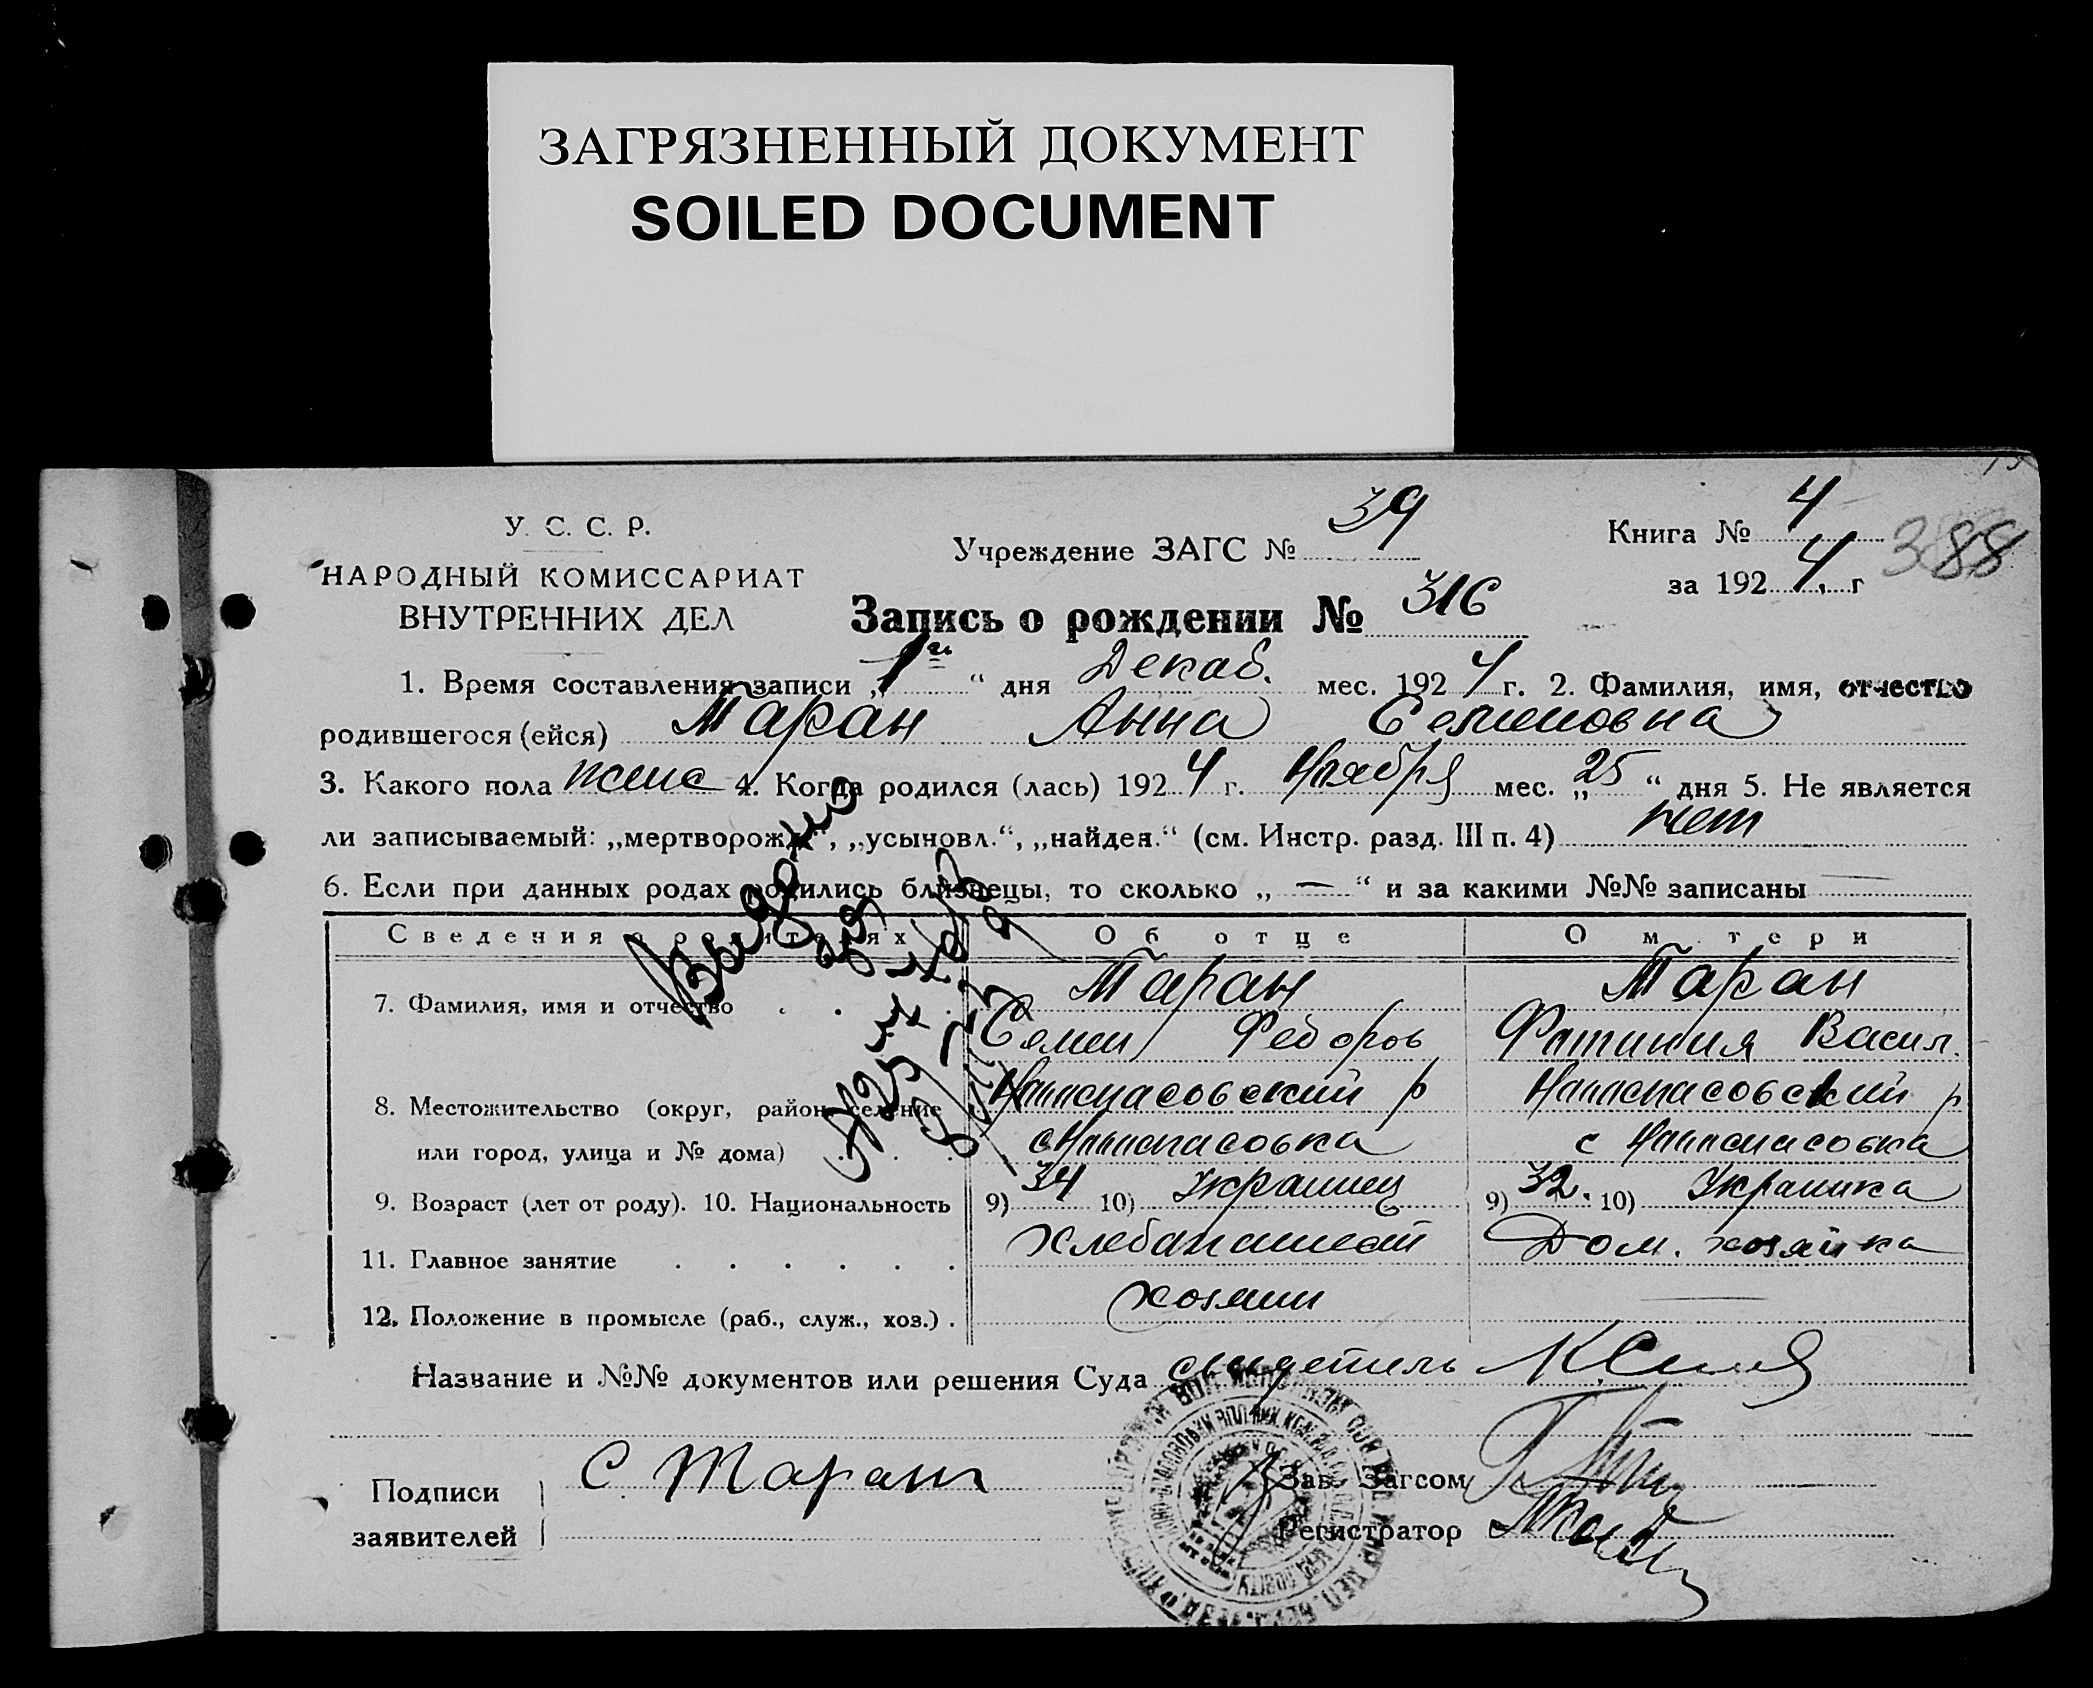 ЗАГРЯЗНЕННЫЙ ДОКУМЕНТ
SOILED DOCUMENT
У. С. С. Р.
НАРОДНЫЙ КОМИССАРИАТ
ВНУТРЕННИХ ДЕЛ
Учреждение ЗАГС № 39
Книга № 4
за 1924 г
388
Запись о рождении № 316
1. Время составления записи „1го“ дня Декаб. мес. 1924 г. 2. Фамилия, имя, отчество
родившегося (ейся) Таран Анна Семеновна
3. Какого пола женс 4. Когда родился (лась) 1924 г. Ноября мес. „25“ дня 5. Не является
ли записываемый: „мертворожд“, „усыновл.“, „найден.“ (см. Инстр. разд. III п. 4) нет
6. Если при данных родах родились близнецы, то сколько „ — “ и за какими №№ записаны —
Сведения о родителях Об отце О матери
7. Фамилия, имя и отчество Таран Таран
Семен Федоров Фотиния Васил.
8. Местожительство (округ, район, селение Новоспасовский р Новоспасовский р
или город, улица и № дома) с Новоспасовка с Новоспасовка
9. Возраст (лет от роду). 10. Национальность 9) 34 10) Украинец 9) 32. 10) Украинка
11. Главное занятие Хлебопашест Дом. хозяйка
12. Положение в промысле (раб., служ., хоз.) хозяин —
Выдано
Название и №№ документов или решения Суда свидетель
Подписи
заявителей
С Таран
Зав. Загсом
Регистратор